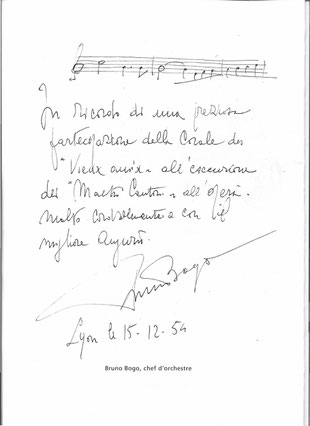 In ricordo di una preziosa
partecipazione della Corale dei
"Vieux amix" all'esecuzione
dei "Maestri Cantori" all'Opera.
Molto cordialmente e con i
migliori Auguri.
Bruno Bogo
Lyon le 15-12-54
Bruno Bogo, chef d'orchestre